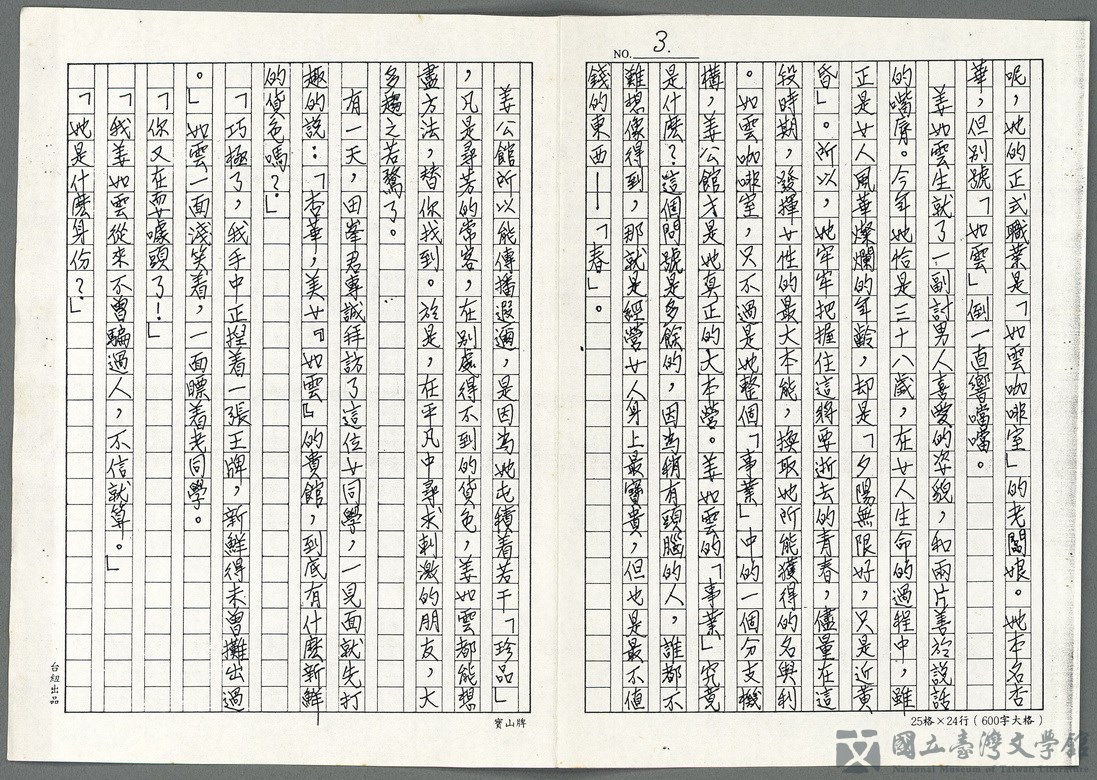 NO. 3.
呢，她的正式職業是「如雲咖啡室」的老闆娘。她本名杏
華，但別號「如雲」倒一直響噹噹。
姜如雲生就了一副討男人喜愛的姿貌，和兩片善於說話
的嘴唇。今年她恰是三十八歲，在女人生命的過程中，雖
正是女人風華燦爛的年齡，却是「夕陽無限好，只是近黃
昏」。所以，她牢牢把握住這將要逝去的青春，儘量在這
段時期，發揮女性的最大本能，換取她所能獲得的名與利
。如雲咖啡室，只不過是她整個「事業」中的一個分支機
構，姜公館才是她真正的大本營。姜如雲的「事業」究竟
是什麼？這個問號是多餘的，因為稍有頭腦的人，誰都不
難想像得到，那就是經營女人身上最寶貴，但也是最不值
錢的東西——「春」。
姜公館所以能傳播遐邇，是因為她屯積着若干「珍品」
，凡是尋芳的常客，在別處得不到的貨色，姜如雲都能想
盡方法，替你找到。於是，在平凡中尋求刺激的朋友，大
多趨之若鶩了。
有一天，田峯君專誠拜訪了這位女同學，一見面就先打
趣的說：「杏華，美女『如雲』的貴館，到底有什麼新鮮
的貨色嗎？」
「巧極了，我手中正揑着一張王牌，新鮮得未曾攤出過
。」如雲一面淺笑着，一面瞟着老同學。
「你又在耍噱頭了！」
「我姜如雲從來不曾騙過人，不信就算。」
「她是什麼身份？」
台紐出品
寶山牌
25格×24行（600字大格）
國立臺灣文學館
National Museum of Taiwan Literature